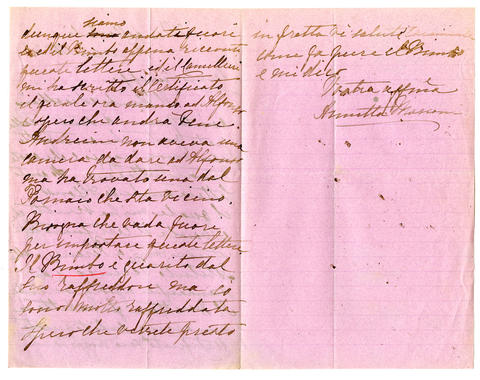 siamo
dunque andati fuori
ed il Bimbo appena ricevute
queste lettere, ed il Cancelliere
mi ha scritto il Certificato
il quale ora mando ad Alfonso
spero che andrà bene.
Andreini non aveva una
camera da dare ad Alfonso
ma ha trovato una dal
Fornaio che sta vicino.
Bisogna che vada fuori
per impostare queste lettere
Il Bimbo è guarito dal
suo raffreddore ma io
sono molto raffreddata
spero che verrete presto
in fretta vi saluto
come fa pure il Bimbo
e mi dico
Vostra affma